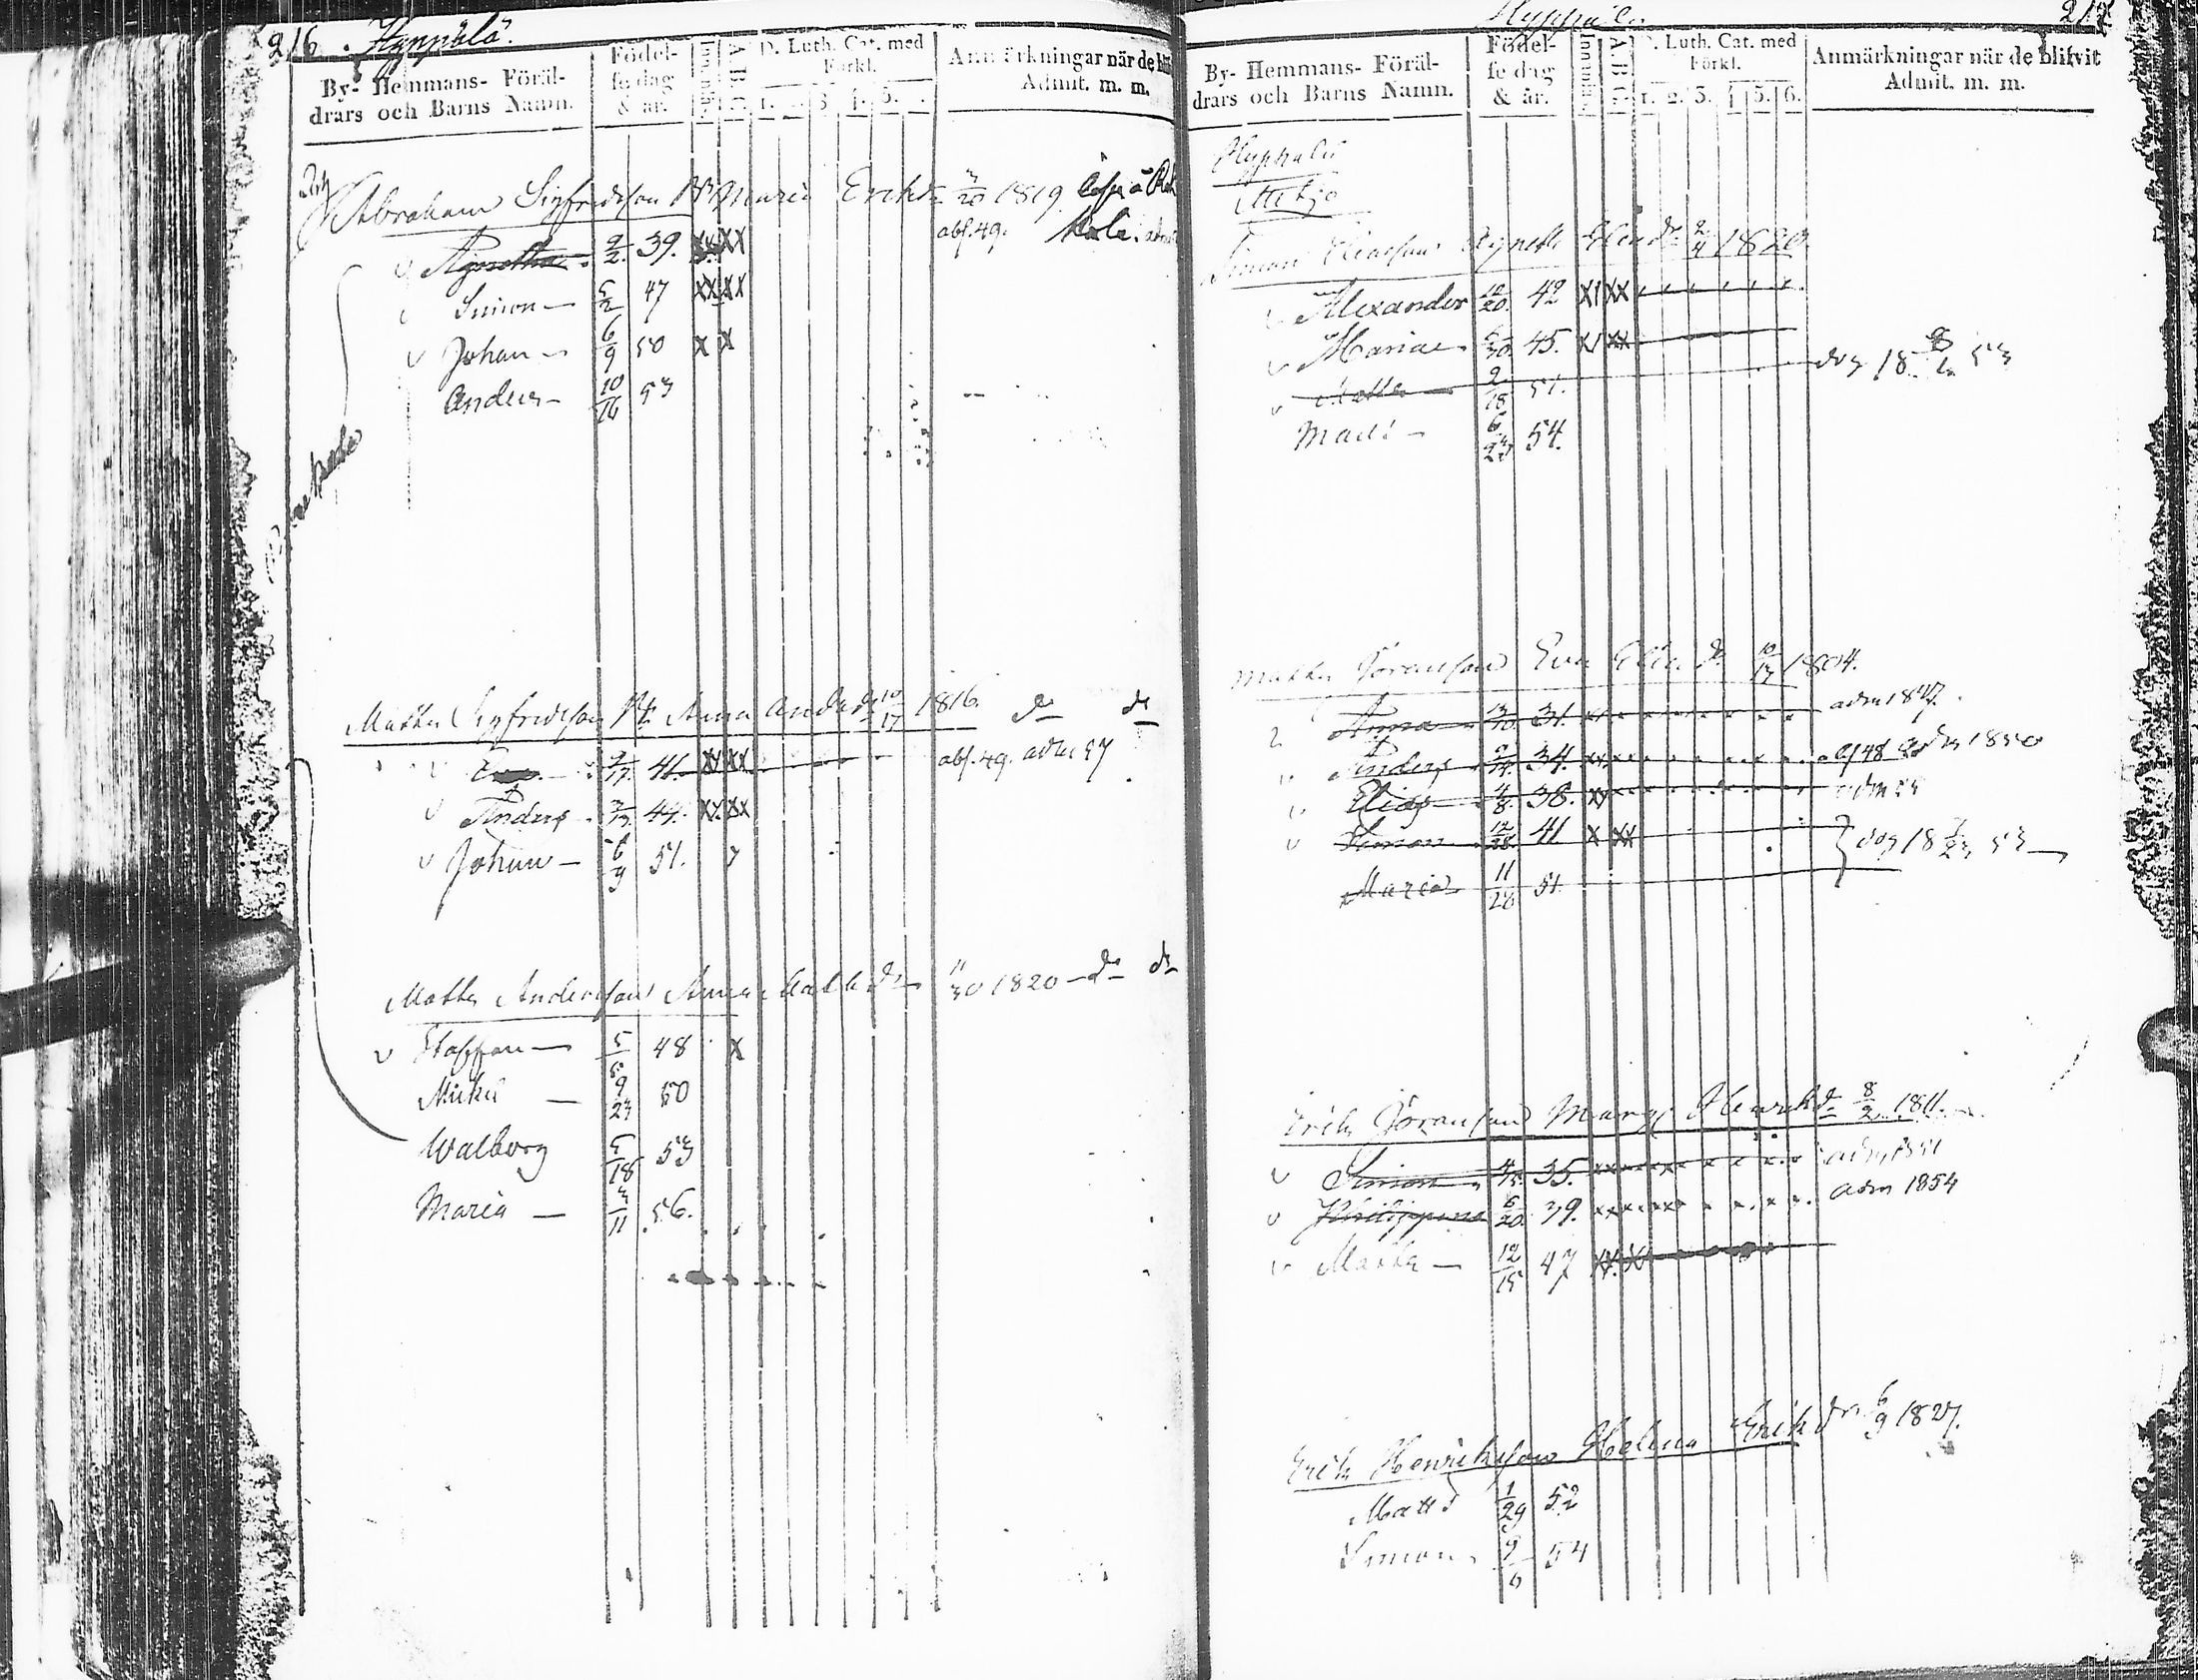 216. Hyppälä.
By- Hemmans- Föräl-
drars och Barns Namn.
Födel-
se dag
& år.
Innanläs.
A B C
D. Luth. Cat. med
Förkl.
1. 3 4. 5.
Anmärkningar när de
Admit. m. m.
Abraham Sigfridsson Maria Eriksdr 3/20 1819
Agnetha 9/2 39. XX XX abs. 49.
Simon 5/2 47 XX XX
Johan 6/9 50 X X
Anders 10/16 53
Matts Sigfridsson Anna Andersdr 10/17 1816. do do
41. XX XX abs. 49. adm 57
Anders 44. XX XX
Johan 6/9 51.
Matts Andersson Anna Mattsdr 11/30 1820 do do
Staffan 48 X
Mickel 9/23 50
Walborg 5/18 53
Maria 3/11 56.
Hyppälä 217.
By- Hemmans- Föräl-
drars och Barns Namn.
Födel-
se dag
& år.
Innanläs.
A B C
D. Luth. Cat. med
Förkl.
1. 2. 3. 4 5. 6.
Anmärkningar när de blifvit
Admit. m. m.
Hyppälä
Simon Eliasson Agneta Eliasdr 2/4 1820
Alexander 12/20. 42 XX XX
Maria 45. XX
2/18 51. dog 18 53
Matts 6/23 54.
Matts Göransson Eva Eliasdr 10/17 1804.
Anna 31. adm 1847.
Anders 34. abs 48 adm 1850
Elias 4/8. 38.
Simon 12/28. 41. X XX dog 18 53
Maria 11/28 51.
Erik Göransson Marg. Henriksdr 8/2 1811.
Simon 35. adm 1851
Philippus 6/20 39. adm 1854
Matts 12/15 47 XX XX
Erik Henriksson Helena Eriksdr 6/9 1827.
Matts 1/29 52
Simon 9/6 54